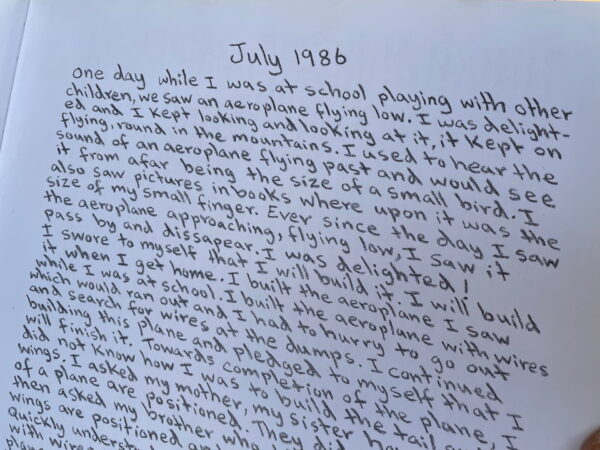 July 1986
one day while I was at school playing with other
children, we saw an aeroplane flying low. I was delight-
ed and I kept looking and looking at it, it kept on
flying, round in the mountains. I used to hear the
sound of an aeroplane flying past and would see
it from afar being the size of a small bird. I
also saw pictures in books where upon it was the
size of my small finger. Ever since the day I saw
the aeroplane approaching, flying low, I saw it
pass by and dissapear. I was delighted!
I swore to myself that I will build it. I will build
it when I get home. I built the aeroplane I saw
while I was at school. I built the aeroplane with wires
which would ran out and I had to hurry to go out
and search for wires at the dumps. I continued
building this plane and pledged to myself that I
will finish it. Towards completion of the plane, I
did not know how I was to build the tail
wings. I asked my mother, my sister
of a plane are positioned. They did
then asked my brother who
wings are positioned
quickly
with